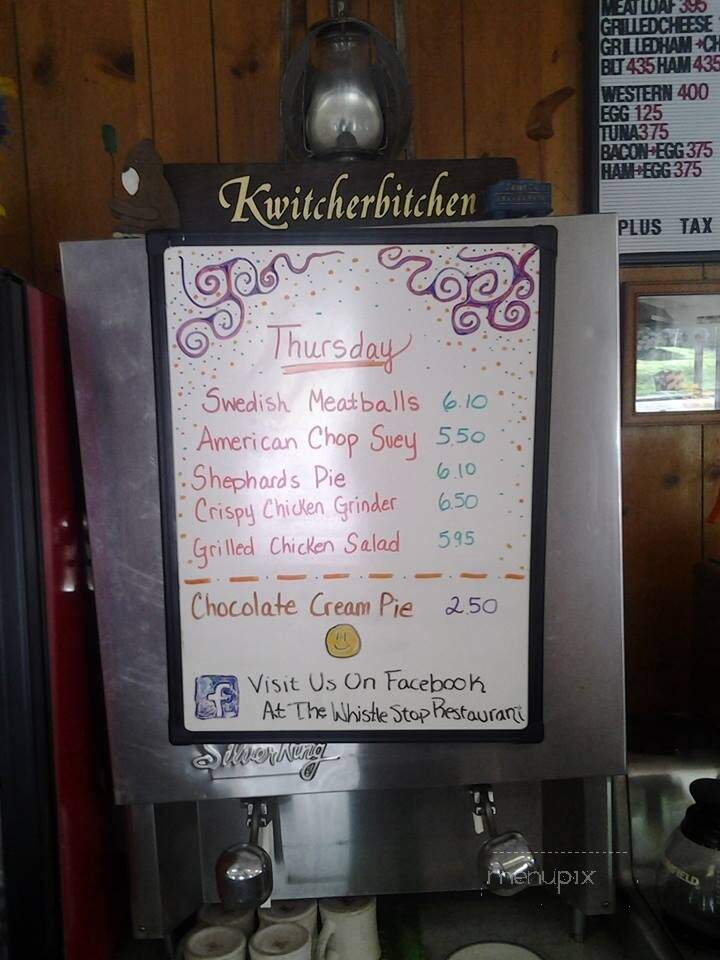 MEATLOAF 395
GRILLEDCHEESE
GRILLEDHAM+CH
BLT 435 HAM 435
WESTERN 400
EGG 125
TUNA 375
BACON+EGG 375
HAM+EGG 375
PLUS TAX
Kwitcherbitchen
Thursday
Swedish Meatballs 6.10
American Chop Suey 5.50
Shephards Pie 6.10
Crispy Chicken Grinder 6.50
Grilled Chicken Salad 5.95
Chocolate Cream Pie 2.50
f Visit Us On Facebook
At The Whistle Stop Restaurant
SilverKing
menupix